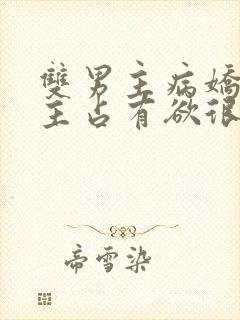 雙男主病嬌
主占有欲很
帝雪染